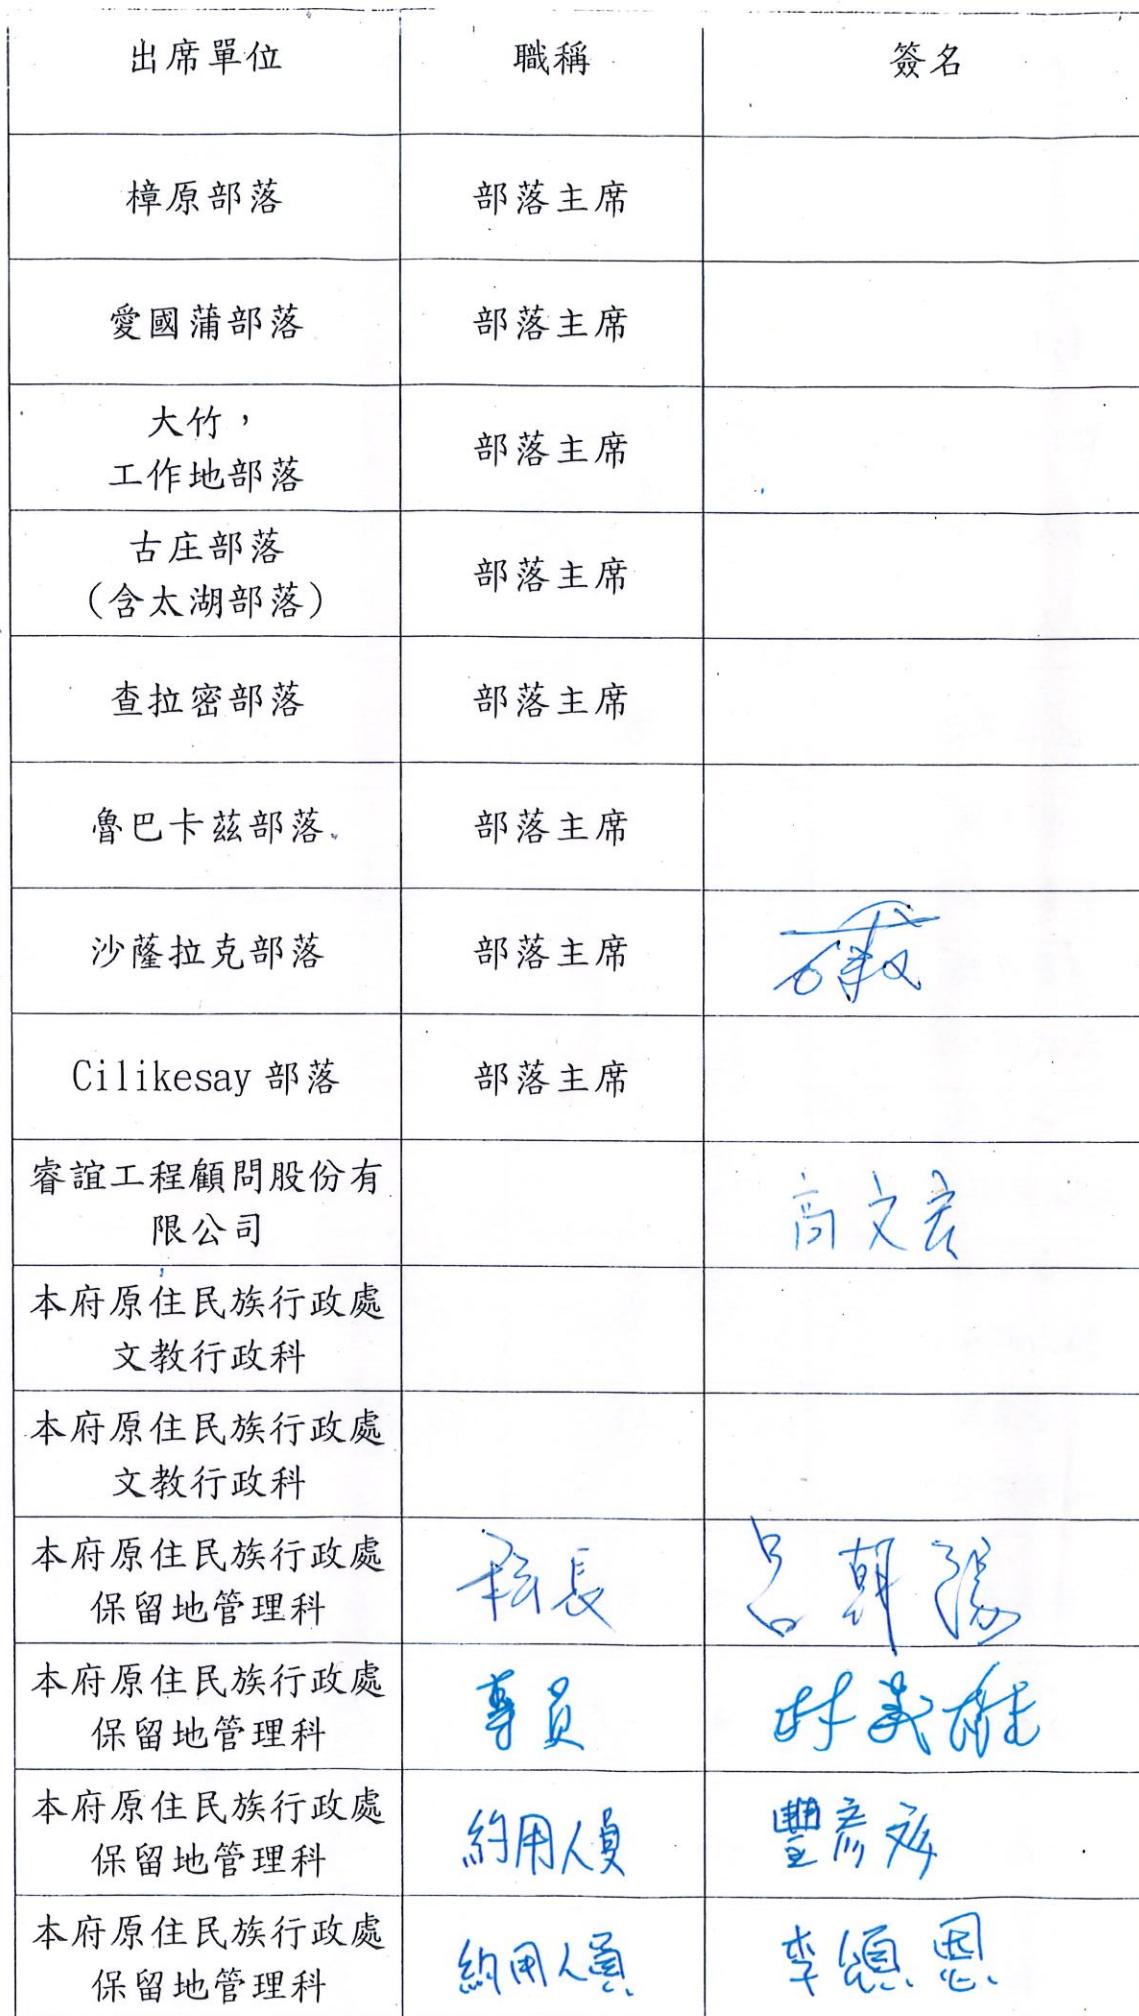 出席單位 職稱 簽名
樟原部落 部落主席
愛國蒲部落 部落主席
大竹，
工作地部落 部落主席
古庄部落
(含太湖部落) 部落主席
查拉密部落 部落主席
魯巴卡茲部落 部落主席
沙薩拉克部落 部落主席
Cilikesay 部落 部落主席
睿誼工程顧問股份有
限公司 高文宏
本府原住民族行政處
文教行政科
本府原住民族行政處
文教行政科
本府原住民族行政處
保留地管理科 科長 呂朝陽
本府原住民族行政處
保留地管理科 專員 林義雄
本府原住民族行政處
保留地管理科 約用人員 豐彥
本府原住民族行政處
保留地管理科 約用人員 李頌恩